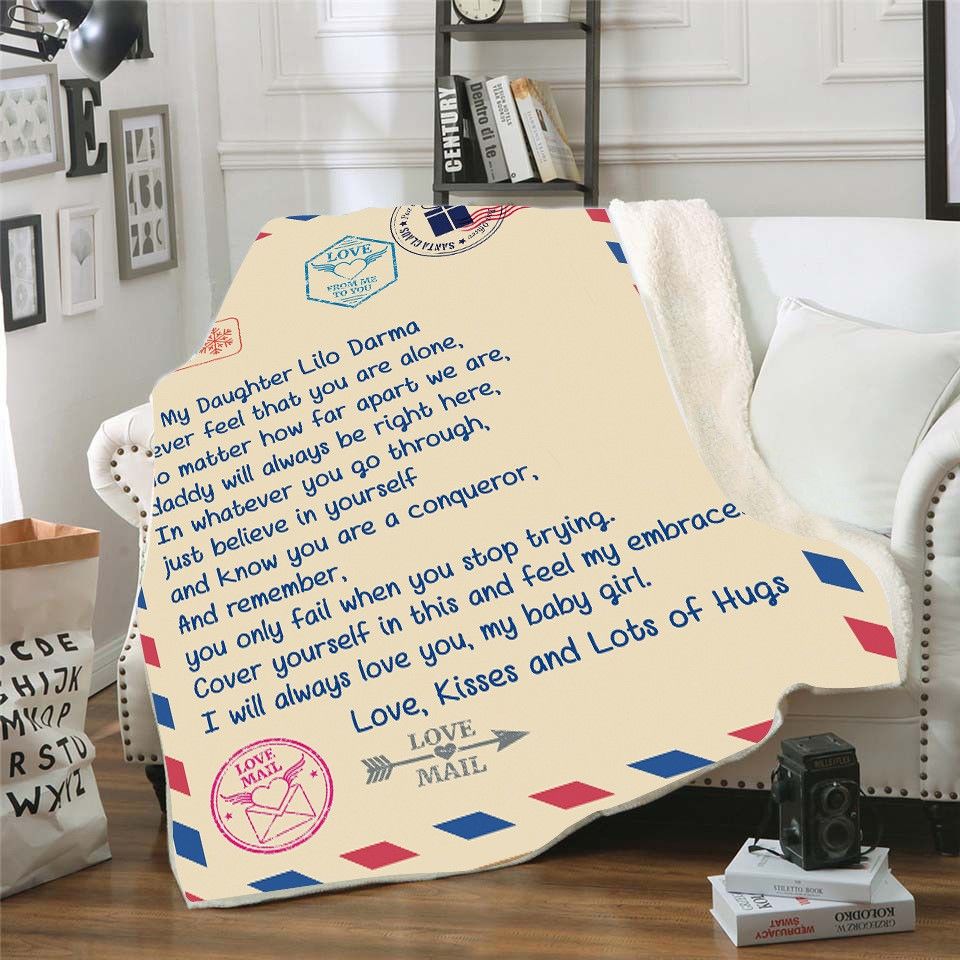 CENTURY
Dentro di te
DESIGN HOTELS
YEARBOOK
SANTA CLAUS
LOVE
FROM ME
TO YOU
My Daughter Lilo Darma
ever feel that you are alone,
o matter how far apart we are,
daddy will always be right here,
In whatever you go through,
just believe in yourself
and know you are a conqueror,
And remember,
you only fail when you stop trying.
Cover yourself in this and feel my embrace.
I will always love you, my baby girl.
Love, Kisses and Lots of Hugs
LOVE
MAIL
LOVE
MAIL
E
CDE
GHIJK
MNOP
RSTU
WXYZ
ROLLEIFLEX
STILETTO BOOK
WĘDRUJĄCY
ŚWIAT
GRZEGORZ W.
KOŁODKO